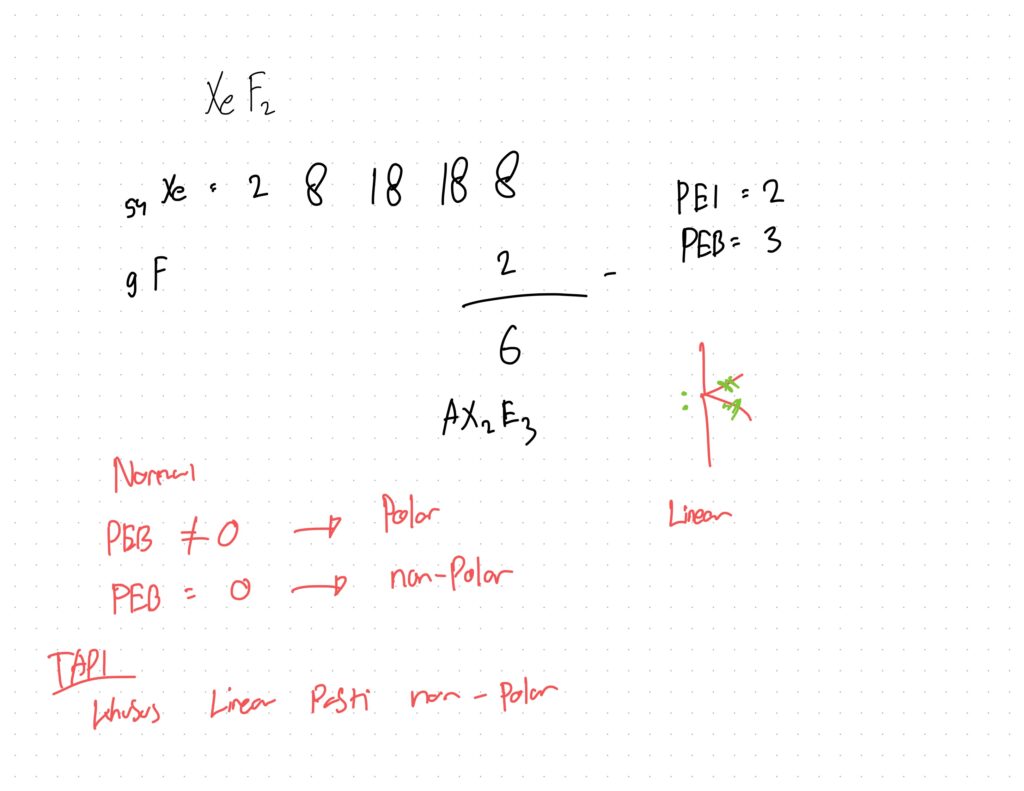 XeF₂
₅₄Xe = 2 8 18 18 8
₉F
2 -
6
AX₂E₃
PEI = 2
PEB = 3
Linear
Normal
PEB ≠ 0 → Polar
PEB = 0 → non-Polar
TAPI
khusus Linear Pasti non-Polar